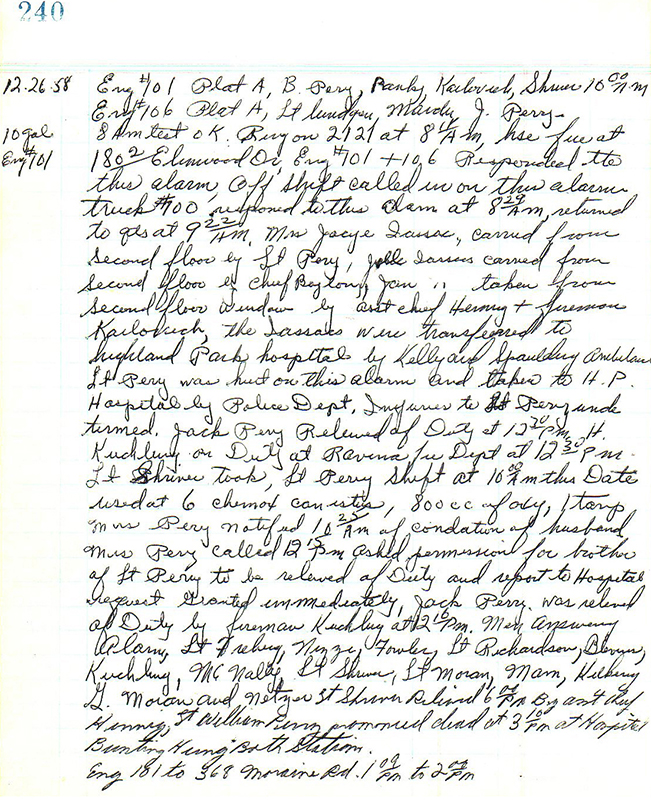 240
12.26.58 Eng #101 Plat A, B. Pery, Panky, Karlovich, Shriver 10 00 A.M
Eng #106 Plat A, Lt Lundgren, Mardy, J. Perry-
10 gal 8 Am test OK. Bury on 2121 at 8 15 AM, hse fire at
Eng #101 1802 Elmwood Dr, Eng #101 + 106 Responded tto
this alarm, Off Shift called in on this alarm
truck #100 responed to this alarm at 8 29 AM, returned
to qts at 9 22 AM, Mrs Joyce Sassac, carried from
second floor by Lt Pery, Sassacs carried from
second floor by Chief Boylon, Jan " taken from
second floor window by asst chief Henny + fireman
Karlovich, the Sassacs were transferred to
highland Park hospital by Kelly and Spaulding Ambulanc
Lt Pery was hurt on this alarm and taken to H.P.
Hospital by Police Dept, Injuries to Lt Pery unde
termed. Jack Pery Relieved of Duty at 12 30 P.M, H.
Kuchling on Duty at Ravinia fire Dept at 12 30 P.M.
Lt Shriver took, Lt Pery shift at 10 00 Am this Date
used at 6 chemox canister, 800 cc of oxy, 1 tarp
Mrs Pery notified 10 25 AM of condation of husband
Mrs Pery called 12 15 Pm asked permission for brother
of Lt Perry to be releved of Duty and report to Hospital
request Granted immediately, Jack Perry was releved
of Duty by fireman Kuchling at 12 Pm. Men Answering
Alarm, Lt Nizzi, Fowler, Lt Richardson,
Kuchling, McNally, Lt Shriver, Lt Moran, Mam,
G. Moran and Netzer Lt Shriver Relieved 6 00 Pm By asst chief
Henny, Lt William Perry pronounced dead at 3 10 Pm at Hospital
Bunting Hung Both Station.
Eng 101 to 368 Moraine Rd. 1 00 Pm to 2 00 Pm